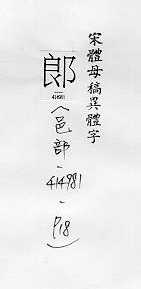 宋體母稿異體字
郎
414981
(邑部-414981-P18)